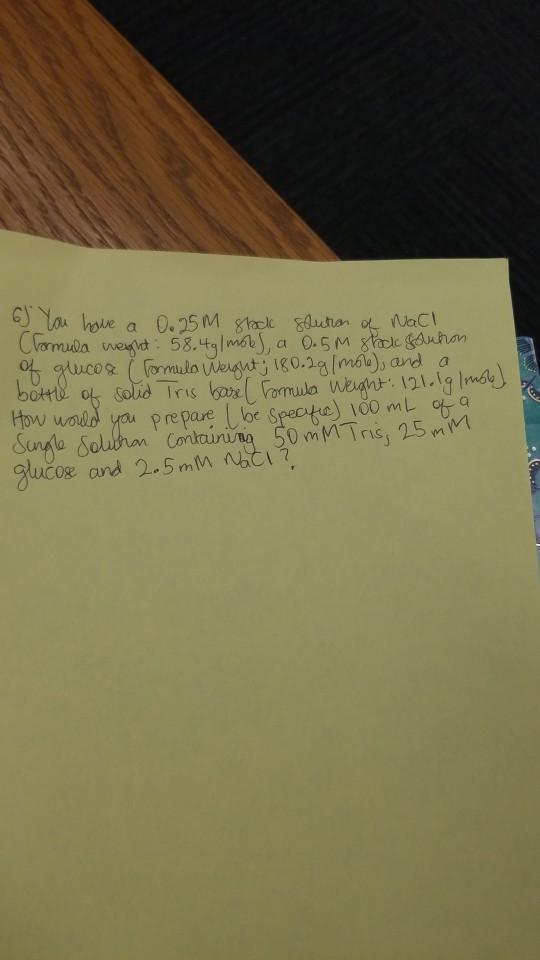 6) You have a 0.25M stock solution of NaCl
(Formula weight: 58.4g/mole), a 0.5M stock solution
of glucose (Formula Weight; 180.2g/mole), and a
bottle of solid Tris base (Formula Weight: 121.1g/mole).
How would you prepare (be specific) 100 mL of a
Single Solution containing 50 mM Tris, 25 mM
glucose and 2.5mM NaCl?